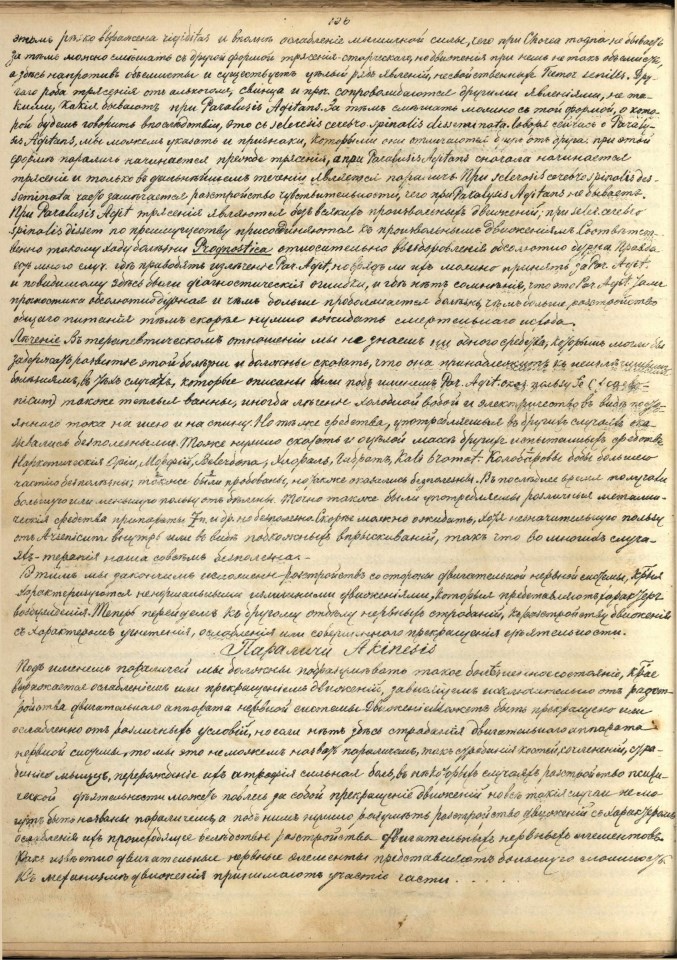 126
этомъ рѣзко выражена rigiditas и вполнѣ ослабленіе мышечной силы, чего при Chorea magna не бываетъ
за тѣмъ можно смѣшать съ другой формой трясенія-старческаго, но движенія при немъ не такъ объемисты,
а здѣсь напротивъ объемисты и существуетъ цѣлый рядъ явленій, несвойственныхъ Tremor senilis. Дру-
гаго рода трясенія отъ алкоголя, свинца и проч. сопровождаются другими явленіями, не та-
кими, какія бываютъ при Paralysis Agitans. За тѣмъ смѣшать можно съ той формой, о кото-
рой будемъ говорить впослѣдствіи, это съ sclerosis cerebro spinalis disseminata. Говоря сейчасъ о Paraly-
sis Agitans, мы можемъ указать и признаки, которыми они отличаются другъ отъ друга: при этой
формѣ параличъ начинается прежде трясенія, а при Paralysis Agitans сначала начинается
трясеніе и только въ дальнѣйшемъ теченіи является параличъ. При sclerosis cerebro spinalis dis-
seminata часто замѣчается разстройство чувствительности, чего при Paralysis Agitans не бываетъ.
При Paralysis Agit. трясенія являются безъ всякихъ произвольныхъ движеній; при scler. cerebro
spinalis dissem. по преимуществу присоединяются къ произвольнымъ движеніямъ. Соотвѣтст-
венно такому ходу болѣзни Prognostica относительно выздоровленія абсолютно дурна. Правда
есть много случ. гдѣ приводятъ излеченіе Par. Agit., но врядъ ли ихъ можно принять за Par. Agit.
и повидимому здѣсь были діагностическія ошибки, и гдѣ нѣтъ сомнѣнія, что это Par. Agit. тамъ
прогностика абсолютно дурная и чѣмъ больше продолжается болѣзнь, чѣмъ больше разстройство
общаго питанія тѣмъ скорѣе нужно ожидать смертельнаго исхода.
Леченіе Въ терапевтическомъ отношеніи мы не знаемъ ни одного средства, которымъ могли бы
задержать развитіе этой болѣзни и должны сказать, что она принадлежитъ къ неизлѣчимымъ
болѣзнямъ, въ тѣхъ случаяхъ, которые описаны были подъ именемъ Par. Agit.
также теплыя ванны, иногда леченіе холодной водой и электричество въ видѣ посто-
яннаго тока на шею и на спину. Но тѣ же средства, употребляемыя въ другихъ случаяхъ ока-
зывались безполезными. Тоже нужно сказать и о цѣлой массѣ другихъ испытанныхъ средствъ
Наркотическія Opii, Морфій, Belladona, Хлоралъ, Kali bromat. Калабарскіе бобы большею
частію безполезны; также были пробованы, но также оказались безполезны. Въ послѣднее время получали
большую или меньшую пользу отъ Точно также были употребляемы различныя металли-
ческія средства препараты Zn, и др. но безполезно. Скорѣе можно ожидать, хотя незначительную пользу
отъ Arsenicum внутрь или въ видѣ подкожныхъ впрыскиваній, такъ что во многихъ случа-
яхъ терапія наша совсѣмъ безполезна.
Этимъ мы закончимъ разстройствъ со стороны двигательной нервной системы, котрыя
характеризуются ненормальными излишними движеніями, которыя представляютъ характеръ
возбужденія. Теперь перейдемъ къ другому отдѣлу нервныхъ страданій, къ разстройству движенія
съ характеромъ угнетенія, ослабленія или совершеннаго прекращенія дѣятельности.
Параличи Akinesis
Подъ именемъ параличей мы должны подразумѣвать такое болѣзненное состояніе, котрое
выражается ослабленіемъ или прекращеніемъ движеній, зависящимъ исключительно отъ разст-
ройства двигательнаго аппарата нервной системы. Движеніе можетъ быть прекращено или
ослаблено отъ различныхъ условій, но если нѣтъ здѣсь страданія двигательнаго аппарата
нервной системы, то мы это не можемъ назвать параличемъ, такъ страданія костей, сочлененій, стра-
даніе мышцъ, перерожденіе ихъ атрофія сильная боль, въ нѣкоторыхъ случаяхъ разстройство психи-
ческой дѣятельности можетъ повлечь за собой прекращеніе движеній но всѣ такіе случаи не мо-
гутъ быть названы параличемъ, а подъ нимъ нужно разумѣть разстройство движеній съ характеромъ
ослабленія ихъ происходящее вслѣдствіе разстройства двигательныхъ нервныхъ элементовъ.
Какъ извѣстно двигательные нервные элементы представляютъ большую сложность.
Къ механизмѣ движенія принимаютъ участіе части . . . . .